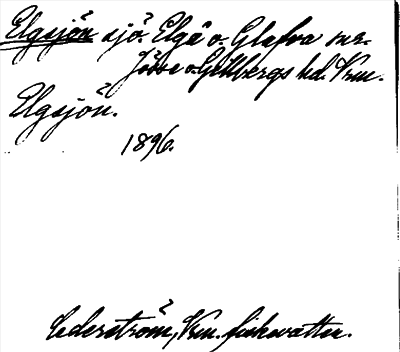 Elgsjön sjö. Elgå o. Glafva snr.
Jösse o. Gillbergs hd. Vrm.
Elgsjön.
1896.
Cederström, Vrm. fiskvatten.